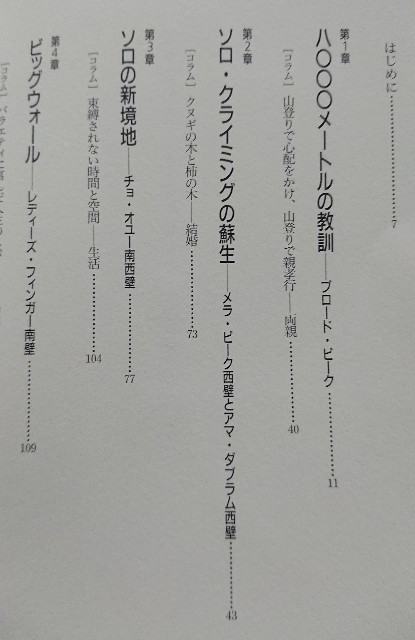 はじめに………………………7
第1章
八〇〇〇メートルの教訓――ブロード・ピーク………………11
［コラム］山登りで心配をかけ、山登りで親孝行――両親………………40
第2章
ソロ・クライミングの蘇生――メラ・ピーク西壁とアマ・ダブラム西壁………………43
［コラム］クヌギの木と柿の木――結婚………………73
第3章
ソロの新境地――チョ・オユー南西壁………………77
［コラム］束縛されない時間と空間――生活………………104
第4章
ビッグウォール――レディーズ・フィンガー南壁………………109
［コラム］